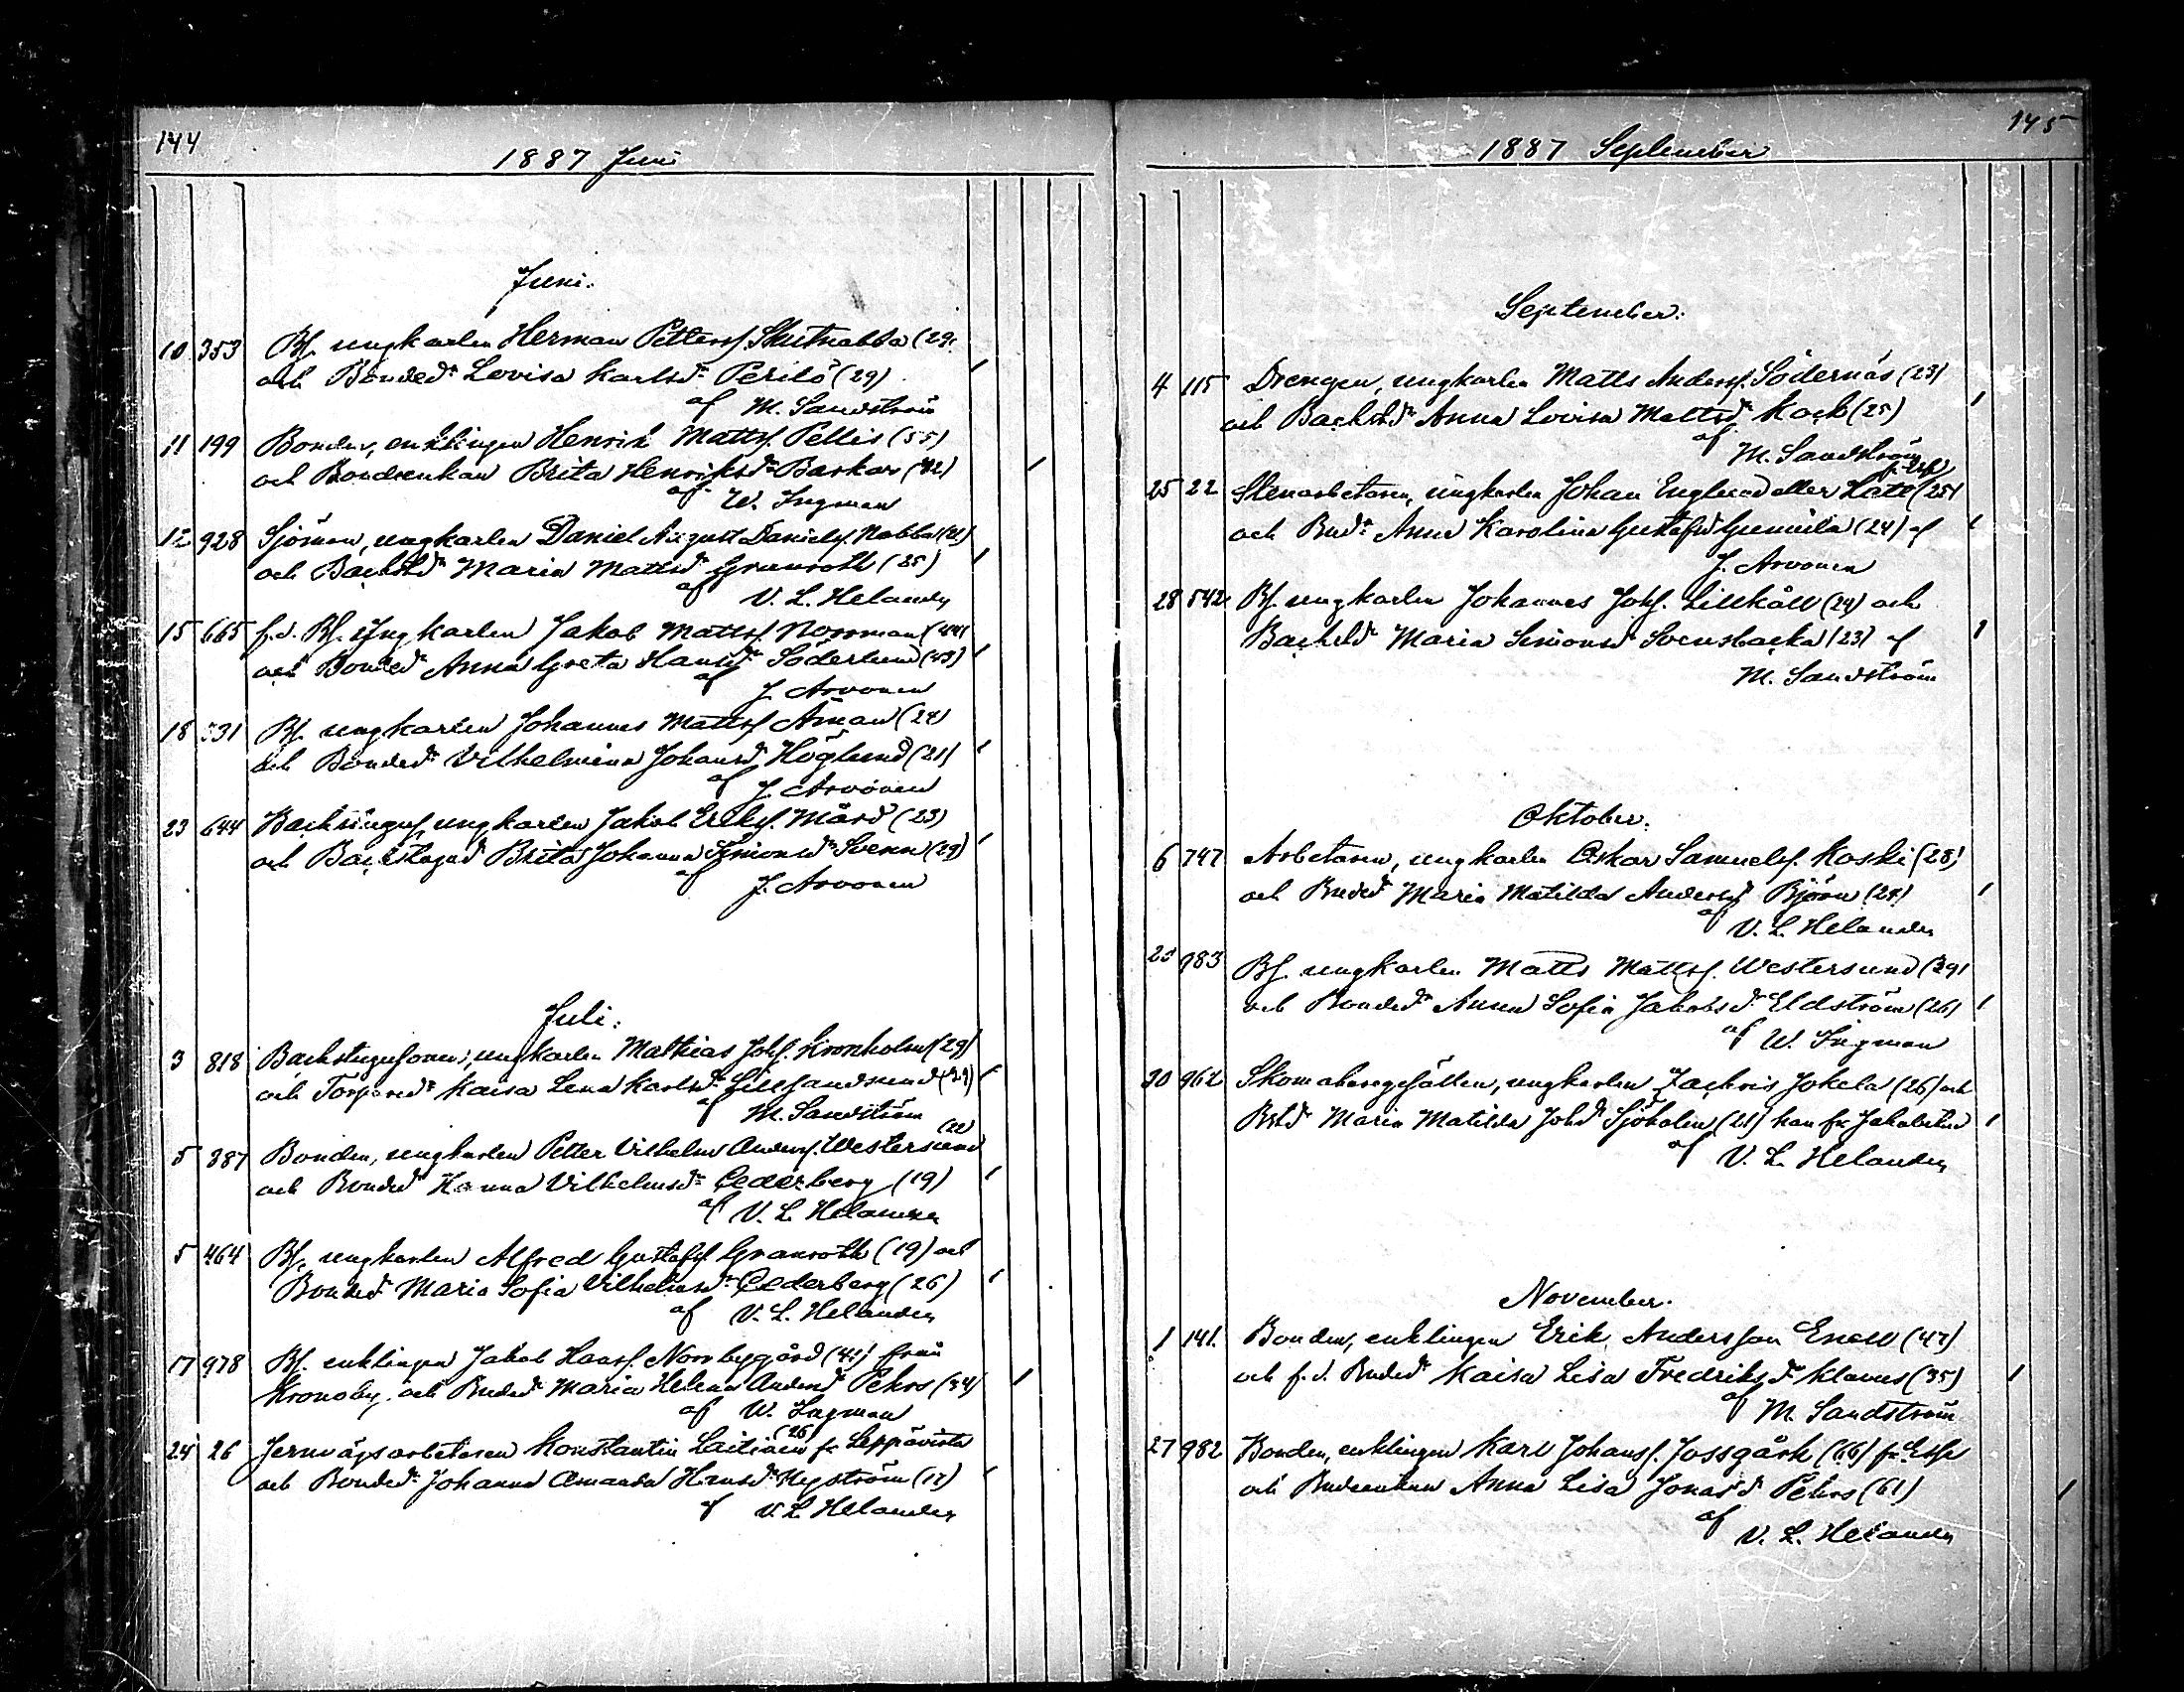 144
1887 Juni
Juni.
10 353 Bs. ungkarlen Herman Petterss. Skutnabba (29)
och Bonded:r Lovisa Karlsd:r Perilö (29)
af M. Sandström
11 199 Bonden, enklingen Henrik Mattss. Pellis (55)
och Bondeenkan Brita Henriksd:r Backar (42)
af W. Ingman
12 928 Sjöman, ungkarlen Daniel August Daniels. Nabba
och Backstd:r Maria Mattsd:r Granroth (25)
af V. L. Helander
15 665 f.d. Bs. Ungkarlen Jakob Mattss. Norrman (44)
och Bonded:r Anna Greta Hansd:r Söderlund (43)
af J. Arvonen
18 331 Bs. ungkarlen Johannes Mattss. Åman (24)
och Bonded:r Vilhelmina Johansd:r Höglund (21)
af J. Arvonen
23 644 ungkarlen Jakob Eriks. Mård (23)
och Brita Johanna Simonsd:r Svenn (29)
af J. Arvonen
Juli.
3 818 Backstugusonen, ungkarlen Mathias Johs. Kronholm (29)
och Torpared:r Kaisa Lena Karlsd:r Lillsandsund (29)
af M. Sandström
(22)
5 387 Bonden, ungkarlen Petter Vilhelm Anderss. Westersund
och Bonded:r Hanna Vilhelmsd:r Cederberg (19)
af V. L. Helander
5 464 Bs. ungkarlen Alfred Gustafss. Granroth (19) och
Bonded:r Maria Sofia Vilhelmsd:r Cederberg (26)
af V. L. Helander
17 978 Bs. enklingen Jakob Norrbygård (41) från
Kronoby och Bonded:r Maria Helena Andersd:r Pehrs (34)
af W. Ingman
(26)
24 26 Jernvägsarbetaren Konstantin Laitinen fr. Leppävirta
och Bonded:r Johanna Amanda Hansd:r Nyström (17)
af V. L. Helander
145
1887 September
September.
4 115 Drengen, ungkarlen Matts Anderss. Södernäs (23)
och Backstd:r Anna Lovisa Mattsd:r Kack (25)
af M. Sandström
25 22 Stenarbetaren, ungkarlen Johan Englund eller Hätt (25)
och Bnd:r Anna Karolina Gustafsd:r Gunnila (24) af
J. Arvonen
28 542 Bs. ungkarlen Johannes Johs. Lillkåll (29) och
Backstd:r Maria Simonsd:r Svensbacka (23) af
M. Sandström
Oktober.
6 747 Arbetaren, ungkarlen Oskar Samuels. Koski (28)
och Bnded:r Maria Matilda Andersd:r Björn (24)
af V. L. Helander
23 983 Bs. ungkarlen Matts Mattss. Westersund (29)
och Bonded:r Anna Sofia Jakobsd:r Eldström (26)
af W. Ingman
30 962 Skomakaregesällen, ungkarlen Zachris Jokela (26) och
Bstd:r Maria Matilda Johsd:r Sjöholm (21) han fr. Jakobstad
af V. L. Helander
November.
1 141. Bonden, enklingen Erik Andersson Enell (47)
och f.d. Bnded:r Kaisa Lisa Fredriksd:r Klavus (35)
af M. Sandström
27 982 Bonden, enklingen Karl Johans. Jossgårk (66)
och Bndeenkan Anna Lisa Jonasd:r Pehrs (61)
af V. L. Helander